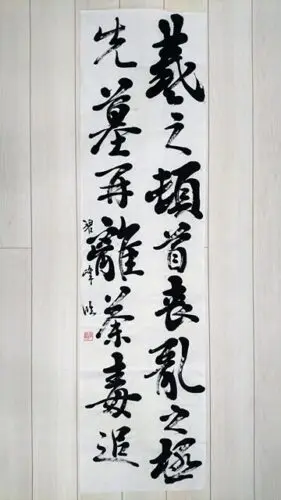 羲之頓首喪亂之極
先墓再離荼毒追
碧峰臨